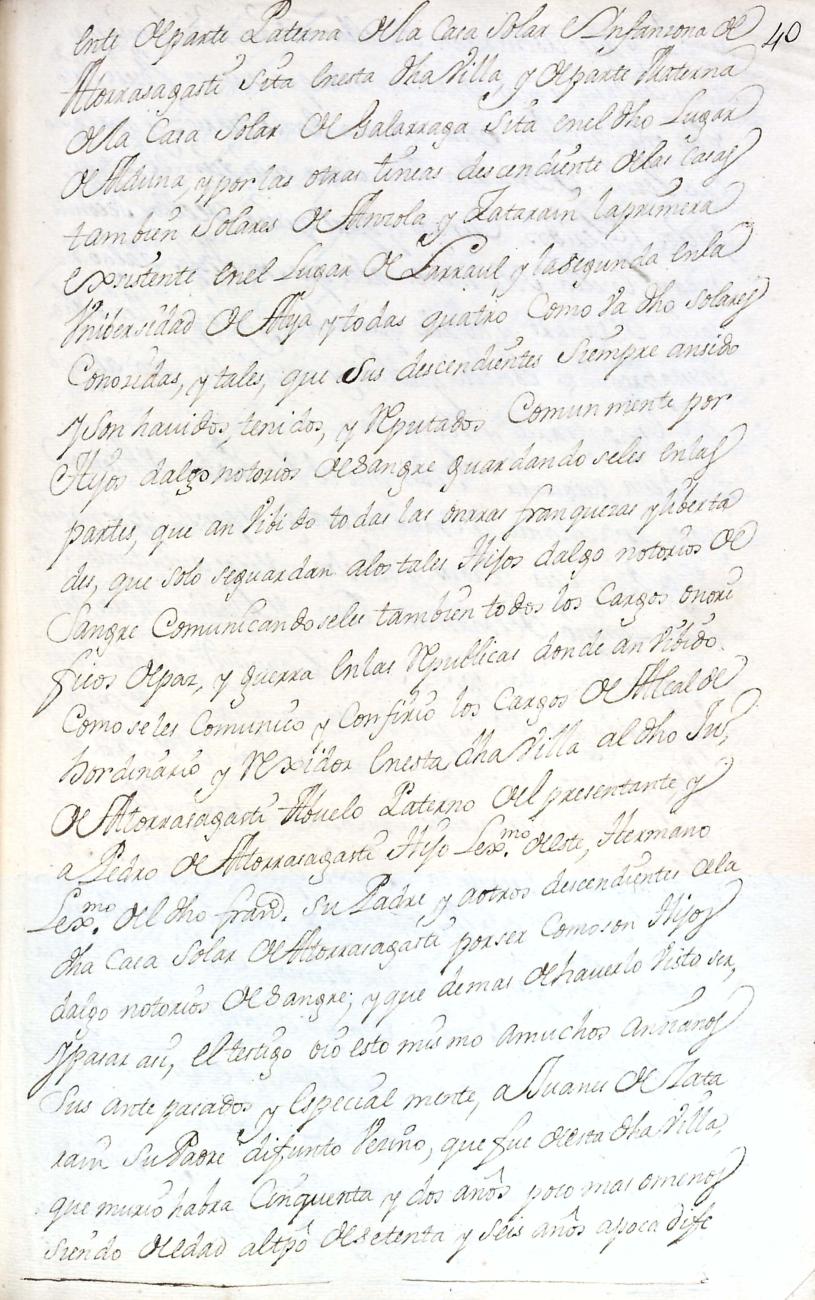 40
ente de parte Paterna de la Casa Solar e Infanzona de
Atorrasagasti Sita en esta dha Villa, y de parte Materna
de la Casa Solar de Galarraga Sita en el dho Lugar
de Alduna, y por las otras lineas descendiente de las Casas
tambien Solares de Anzola y Zatarain la primera
existente en el Lugar de Larraul, y la Segunda en la
Vnibersidad de Aya y todas quatro Como Va dho solares
Conosidas, y tales, que Sus descendientes Siempre ansido
y Son hauidos, tenidos, y Reputados Comunmente por
Hijos dalgo notorios de Sangre guardandoseles en las
partes, que an Vibido todas las onrras franquezas y liberta
des, que solo se guardan alos tales Hijos dalgo notorios de
Sangre Comunicandoseles tambien todos los Cargos onori
ficos de paz, y guerra en las Republicas donde an Vibido.
Como se les Comunico y Confirio los Cargos de Alcalde
hordinario y Rexidor en esta dha Villa al dho Jus,
de Atorrasagasti Abuelo Paterno del presentante, y
a Pedro de Atorrasagasti Hijo Lex.mo de este, Hermano
Lex.mo del dho fran.co Su Padre y aotros descendientes de la
dha Casa Solar de Atorrasagasti por ser Como son Hijos
dalgo notorios de Sangre; y que demas de hauerlo Visto ser,
y pasar asi, el testigo oio esto mismo amuchos annanos
Sus ante pasados y Especial mente, a Juanes de Zata
rain Su Padre difunto Vezino, que fue de esta dha Villa,
que murio habra Cinquenta y dos años poco mas omenos
siendo de edad al tpo de setenta y seis años apoca dife